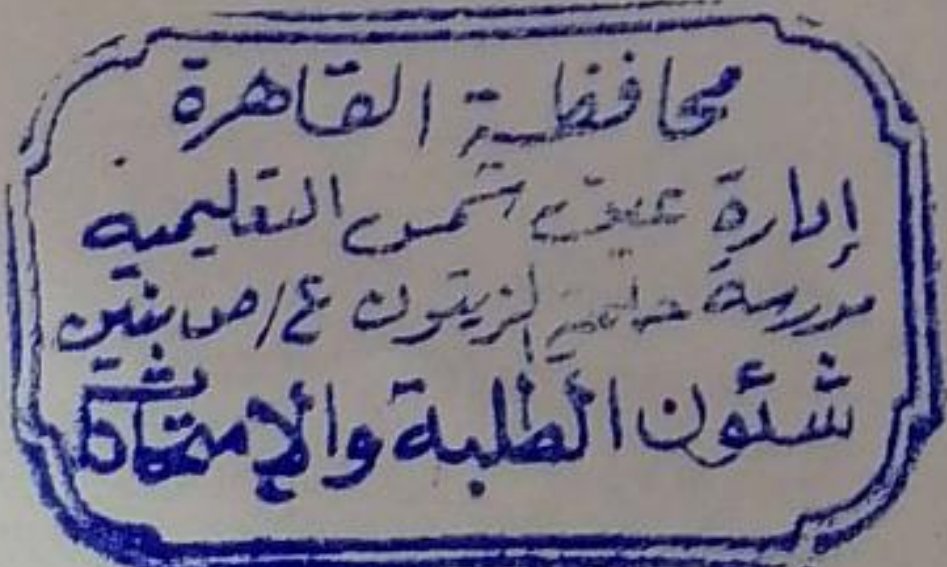 محافظة القاهرة
إدارة عين شمس التعليمية
مدرسة حلمية الزيتون ع/ص بنين
شئون الطلبة والإمتحانات